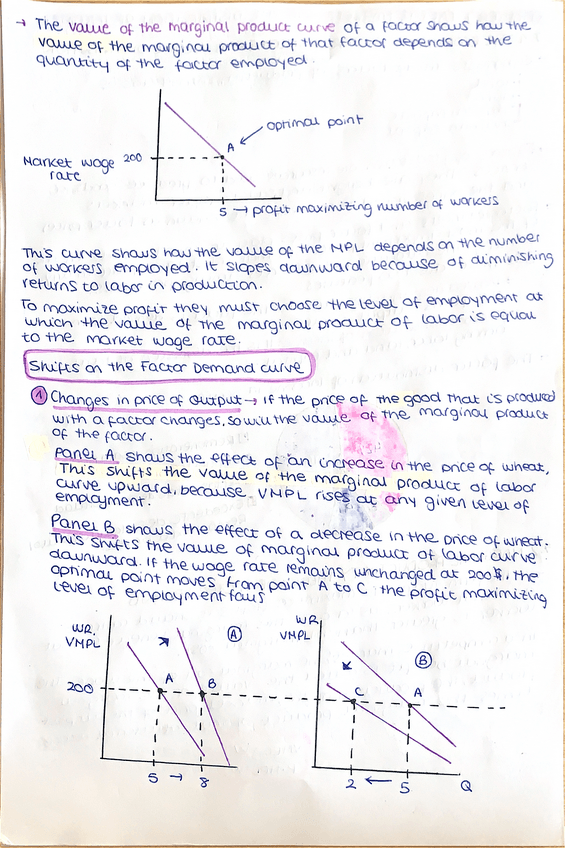 → The value of the marginal product curve of a factor shows how the
value of the marginal product of that factor depends on the
quantity of the factor employed.
optimal point
A
Market wage rate
200
5 → profit maximizing number of workers
This curve shows how the value of the MPL depends on the number
of workers employed. It slopes downward because of diminishing
returns to labor in production.
To maximize profit they must choose the level of employment at
which the value of the marginal product of labor is equal
to the market wage rate.
Shifts on the Factor Demand curve
① Changes in price of output → If the price of the good that is produced
with a factor changes, so will the value of the marginal product
of the factor.
Panel A shows the effect of an increase in the price of wheat.
This shifts the value of the marginal product of labor
curve upward, because VMPL rises at any given level of
employment.
Panel B shows the effect of a decrease in the price of wheat.
This shifts the value of marginal product of labor curve
downward. If the wage rate remains unchanged at 200$, the
optimal point moves from point A to C: the profit maximizing
level of employment falls
WR,
VMPL
Ⓐ
200
A
B
5 → 8
WR,
VMPL
Ⓑ
C
A
2 ← 5
Q